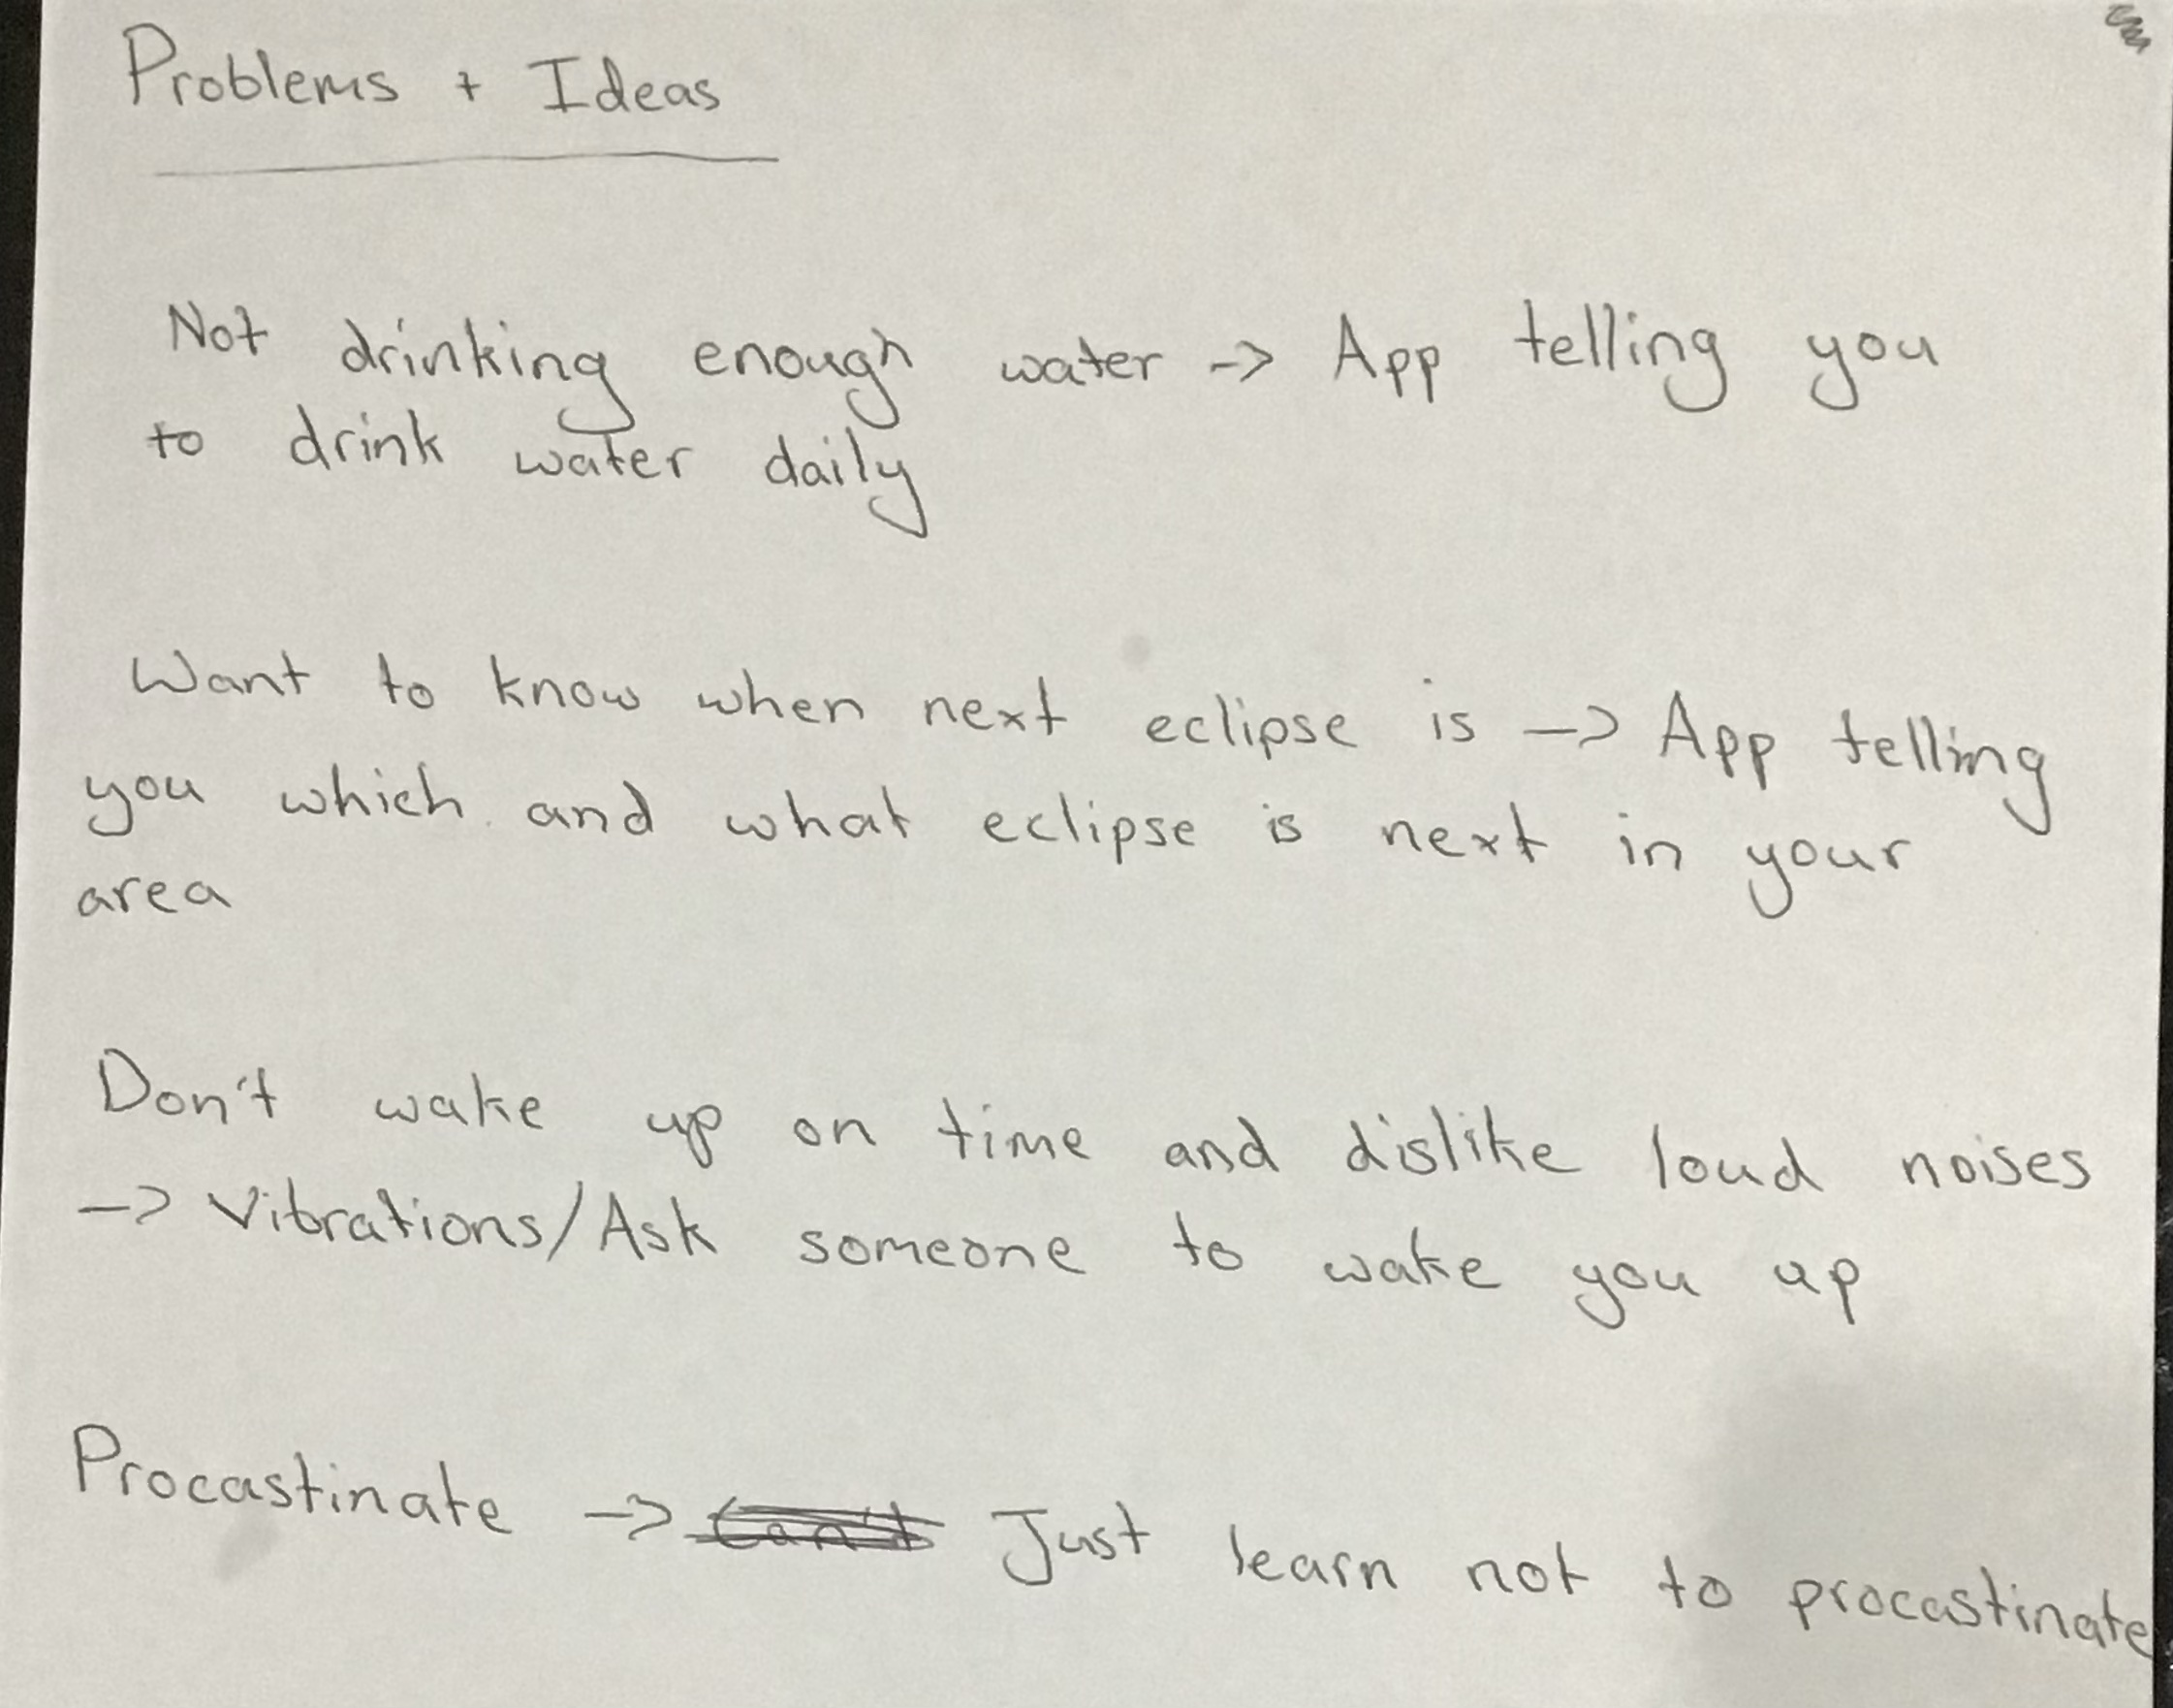 Problems + Ideas
Not drinking enough water -> App telling you
to drink water daily
Want to know when next eclipse is -> App telling
you which and what eclipse is next in your
area
Don't wake up on time and dislike loud noises
-> Vibrations/Ask someone to wake you up
Procastinate -> Can't Just learn not to procastinate